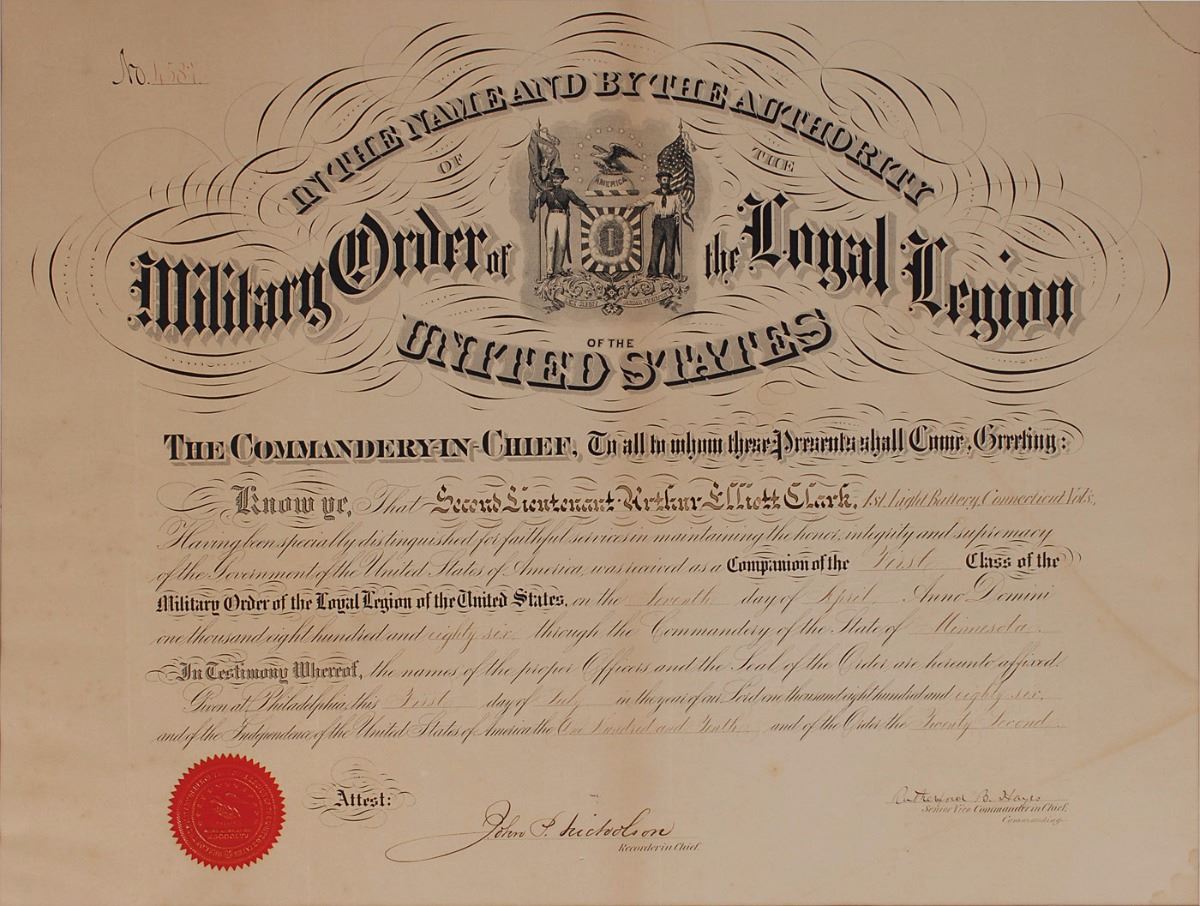 No. 4587
IN THE NAME AND BY THE AUTHORITY
OF THE
AMERICA
Military Order of the Loyal Legion
OF THE
UNITED STATES
THE COMMANDERY-IN-CHIEF, To all to whom these Presents shall Come, Greeting:
Know ye, That Second Lieutenant Arthur Elliott Clark, 1st Light Battery, Connecticut Vols.,
Having been specially distinguished for faithful services in maintaining the honor, integrity and supremacy
of the Government of the United States of America, was received as a Companion of the First Class of the
Military Order of the Loyal Legion of the United States, on the Seventh day of April Anno Domini
one thousand eight hundred and eighty six through the Commandery of the State of Minnesota.
In Testimony Whereof, the names of the proper Officers and the Seal of the Order are hereunto affixed.
Given at Philadelphia, this First day of July in the year of our Lord one thousand eight hundred and eighty six,
and of the Independence of the United States of America the One hundred and Tenth and of the Order the Twenty Second
Attest:
John P. Nicholson
Recorder in Chief.
Rutherford B. Hayes
Senior Vice Commander in Chief,
Commanding.